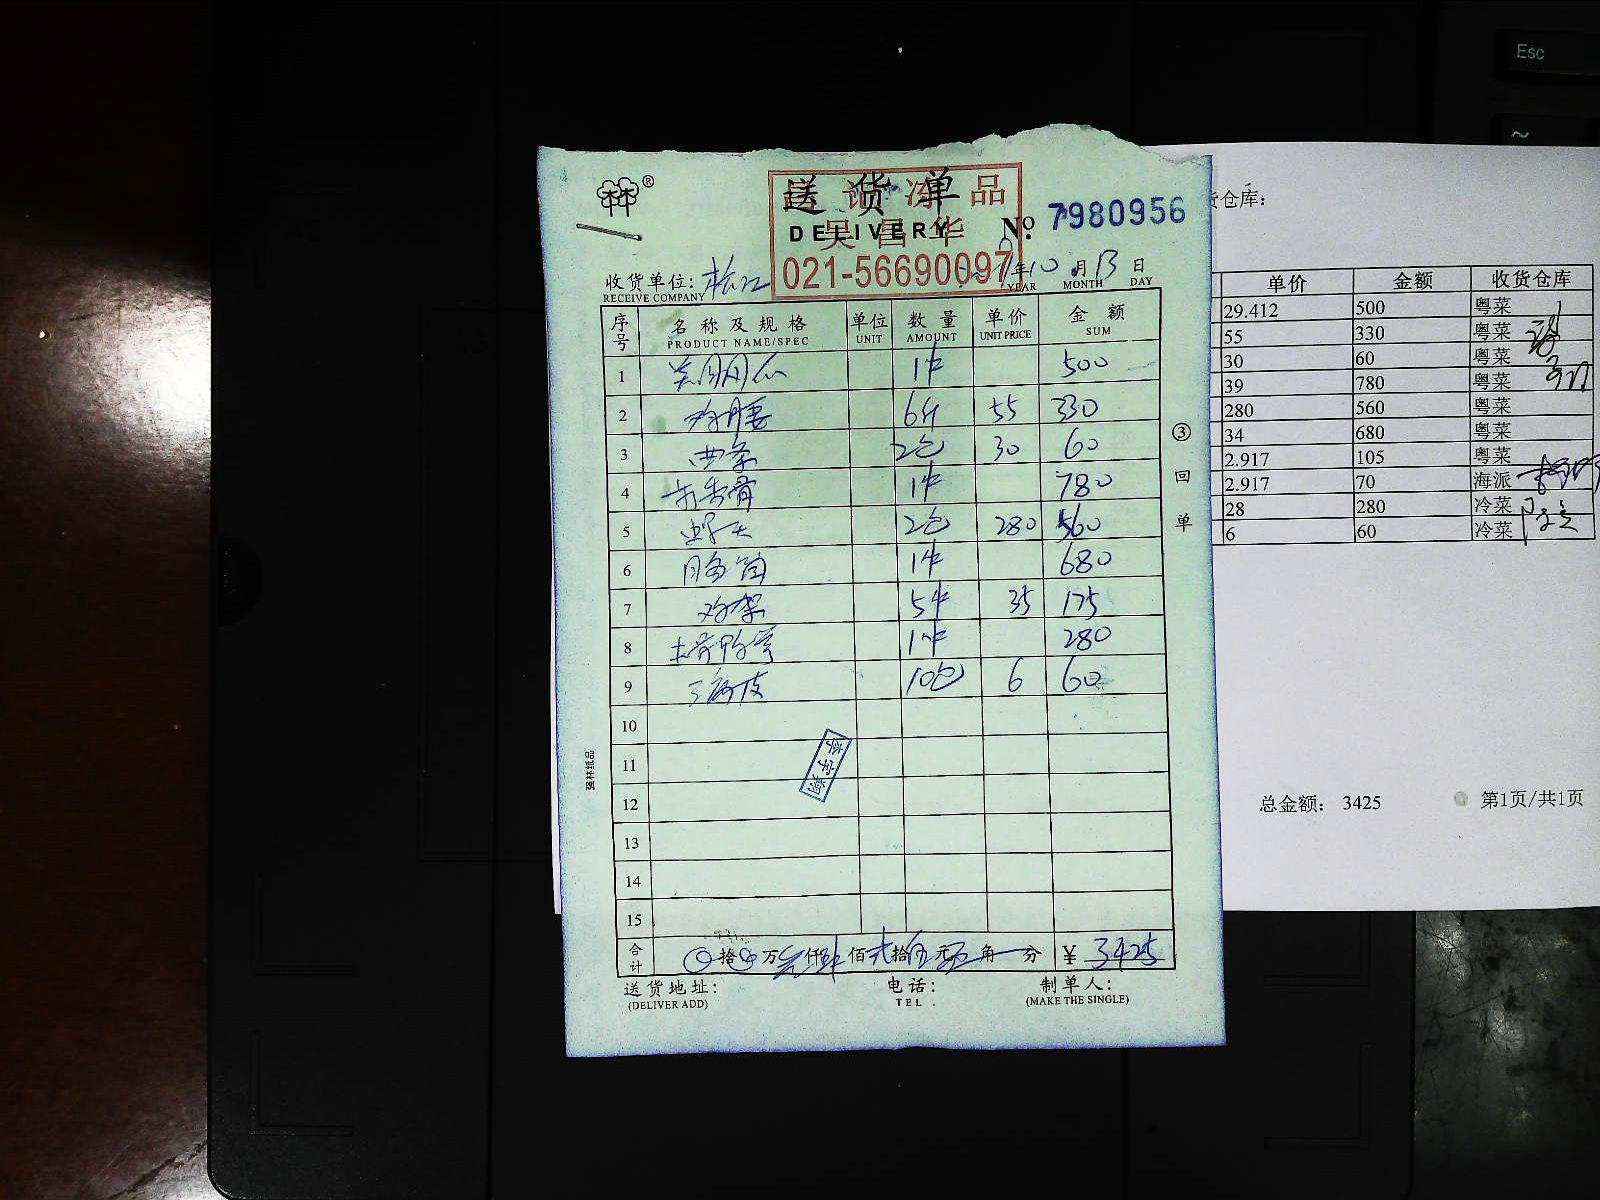 送 货 单
DELIVERY
品
吴昌华
021-56690097
№ 7980956
收货单位: 松江
RECEIVE COMPANY
年 10 月 13 日
YEAR MONTH DAY
序号 名称及规格 单位 数量 单价 金额
PRODUCT NAME/SPEC UNIT AMOUNT UNIT PRICE SUM
1 1件 500
2 6斤 55 330
3 2包 30 60
4 1件 780
5 2包 280 560
6 1件 680
7 鸡架 5件 35 175
8 1件 280
9 10包 6 60
10
11
12
13
14
15
合计 拾 万 叁仟肆佰贰拾伍元 角 分 ¥ 3425
送货地址: 电话: 制单人:
(DELIVER ADD) TEL (MAKE THE SINGLE)
③ 回 单
强林纸品
李宇翔
货仓库:
单价 金额 收货仓库
29.412 500 粤菜
55 330 粤菜
30 60 粤菜
39 780 粤菜
280 560 粤菜
34 680 粤菜
2.917 105 粤菜
2.917 70 海派
28 280 冷菜
6 60 冷菜
总金额: 3425 第1页/共1页
Esc
~